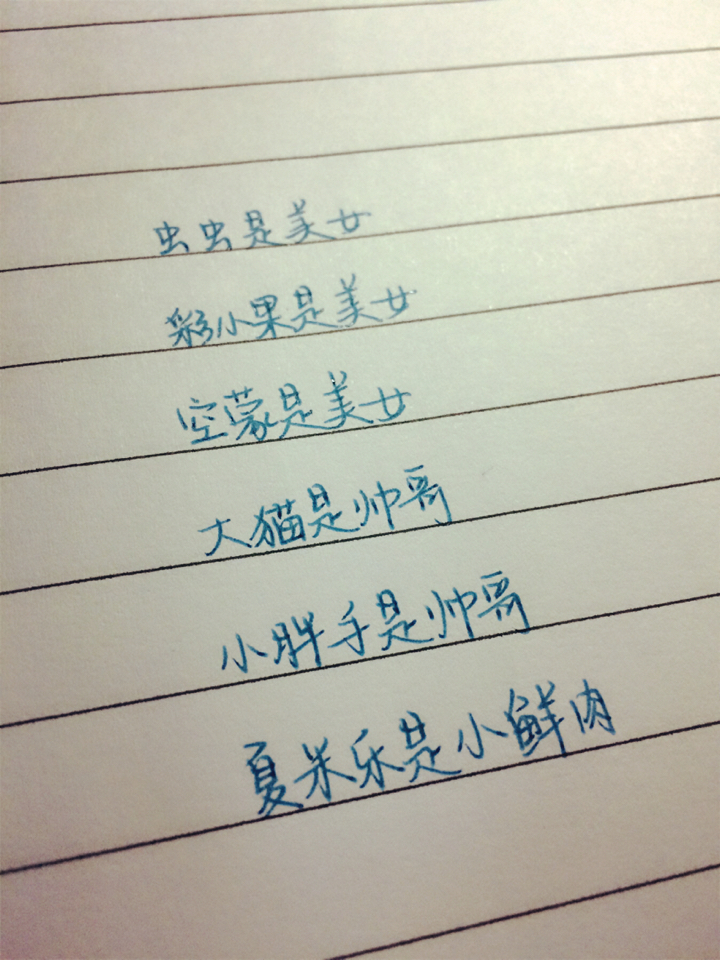 虫虫是美女
彩小果是美女
空蒙是美女
大猫是帅哥
小胖手是帅哥
夏米乐是小鲜肉